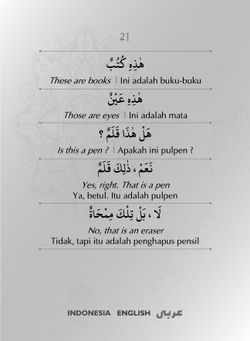 21
هٰذِهِ كُتُبٌ
These are books | Ini adalah buku-buku
هٰذِهِ عَيْنٌ
Those are eyes | Ini adalah mata
هَلْ هٰذَا قَلَمٌ ؟
Is this a pen ? | Apakah ini pulpen ?
نَعَمْ ، ذٰلِكَ قَلَمٌ
Yes, right. That is a pen
Ya, betul. Itu adalah pulpen
لَا ، بَلْ تِلْكَ مِمْحَاةٌ
No, that is an eraser
Tidak, tapi itu adalah penghapus pensil
INDONESIA ENGLISH عربى